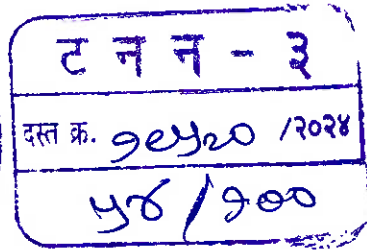 ट न न - ३
दस्त क्र. १९५२० /२०२४
५४ / १००